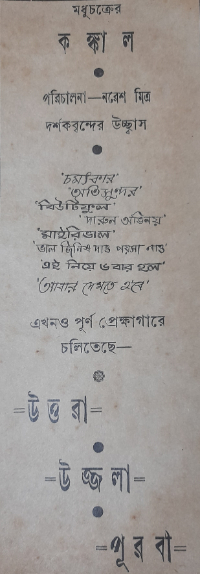 মধুচক্রের
ক ঙ্কা ল
পরিচালনা—নরেশ মিত্র
দর্শকবৃন্দের উচ্ছ্বাস
'চমৎকার'
'অতিসুন্দর'
'বিউটিফুল'
'দারুন অভিনয়'
'মাইরিভাল'
'ভাল জিনিষ দাও পয়সা নাও'
'এই নিয়ে ৬বার হল'
'আবার দেখতে হবে'
এখনও পূর্ণ প্রেক্ষাগারে
চলিতেছে—
=উ ত্ত রা=
=উ জ্জ লা=
=পূ র বী=